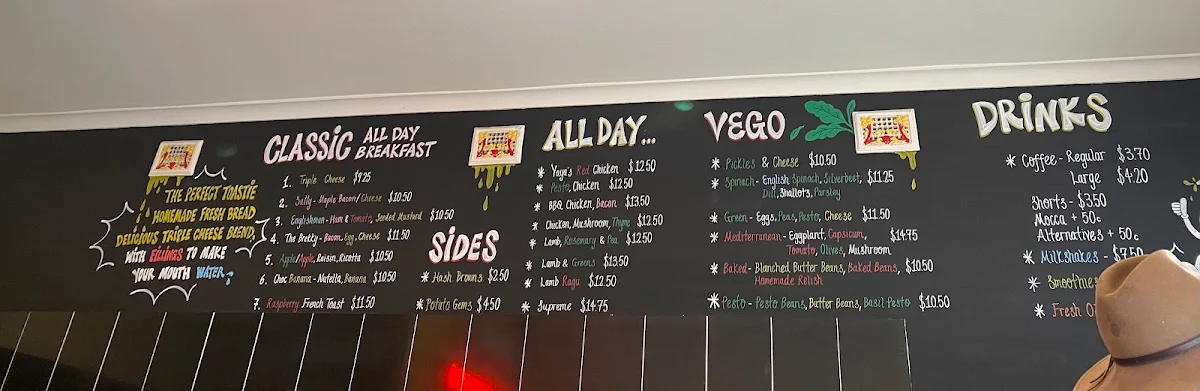 THE PERFECT TOASTIE
HOMEMADE FRESH BREAD
DELICIOUS TRIPLE CHEESE BLEND,
WITH FILLINGS TO MAKE
YOUR MOUTH WATER
CLASSIC ALL DAY
BREAKFAST
1. Triple Cheese $9.25
2. Sally - Maple Bacon/Cheese $10.50
3. Englishman - Ham & Tomato, Seeded Mustard $10.50
4. The Bretty - Bacon, Egg, Cheese $11.50
5. Apple/Apple, Raisin, Ricotta $10.50
6. Choc Banana - Nutella, Banana $10.50
7. Raspberry French Toast $11.50
SIDES
* Hash Browns $2.50
* Potato Gems $4.50
ALL DAY...
* Yaya's Red Chicken $12.50
* Pesto, Chicken $12.50
* BBQ Chicken, Bacon $13.50
* Chicken, Mushroom, Thyme $12.50
* Lamb, Rosemary & Pea $12.50
* Lamb & Greens $13.50
* Lamb Ragu $12.50
* Supreme $14.75
VEGO
* Pickles & Cheese $10.50
* Spinach - English Spinach, Silverbeet, $11.25
Dill, Shallots, Parsley
* Green - Eggs, Peas, Pesto, Cheese $11.50
* Mediterranean - Eggplant, Capsicum, $14.75
Tomato, Olives, Mushroom
* Baked - Blanched Butter Beans, Baked Beans, $10.50
Homemade Relish
* Pesto - Pesto Beans, Butter Beans, Basil Pesto $10.50
DRINKS
* Coffee - Regular $3.70
Large $4.20
Shorts - $3.50
Mocca + 50c
Alternatives + 50c
* Milkshakes - $7.50
* Smoothies
* Fresh